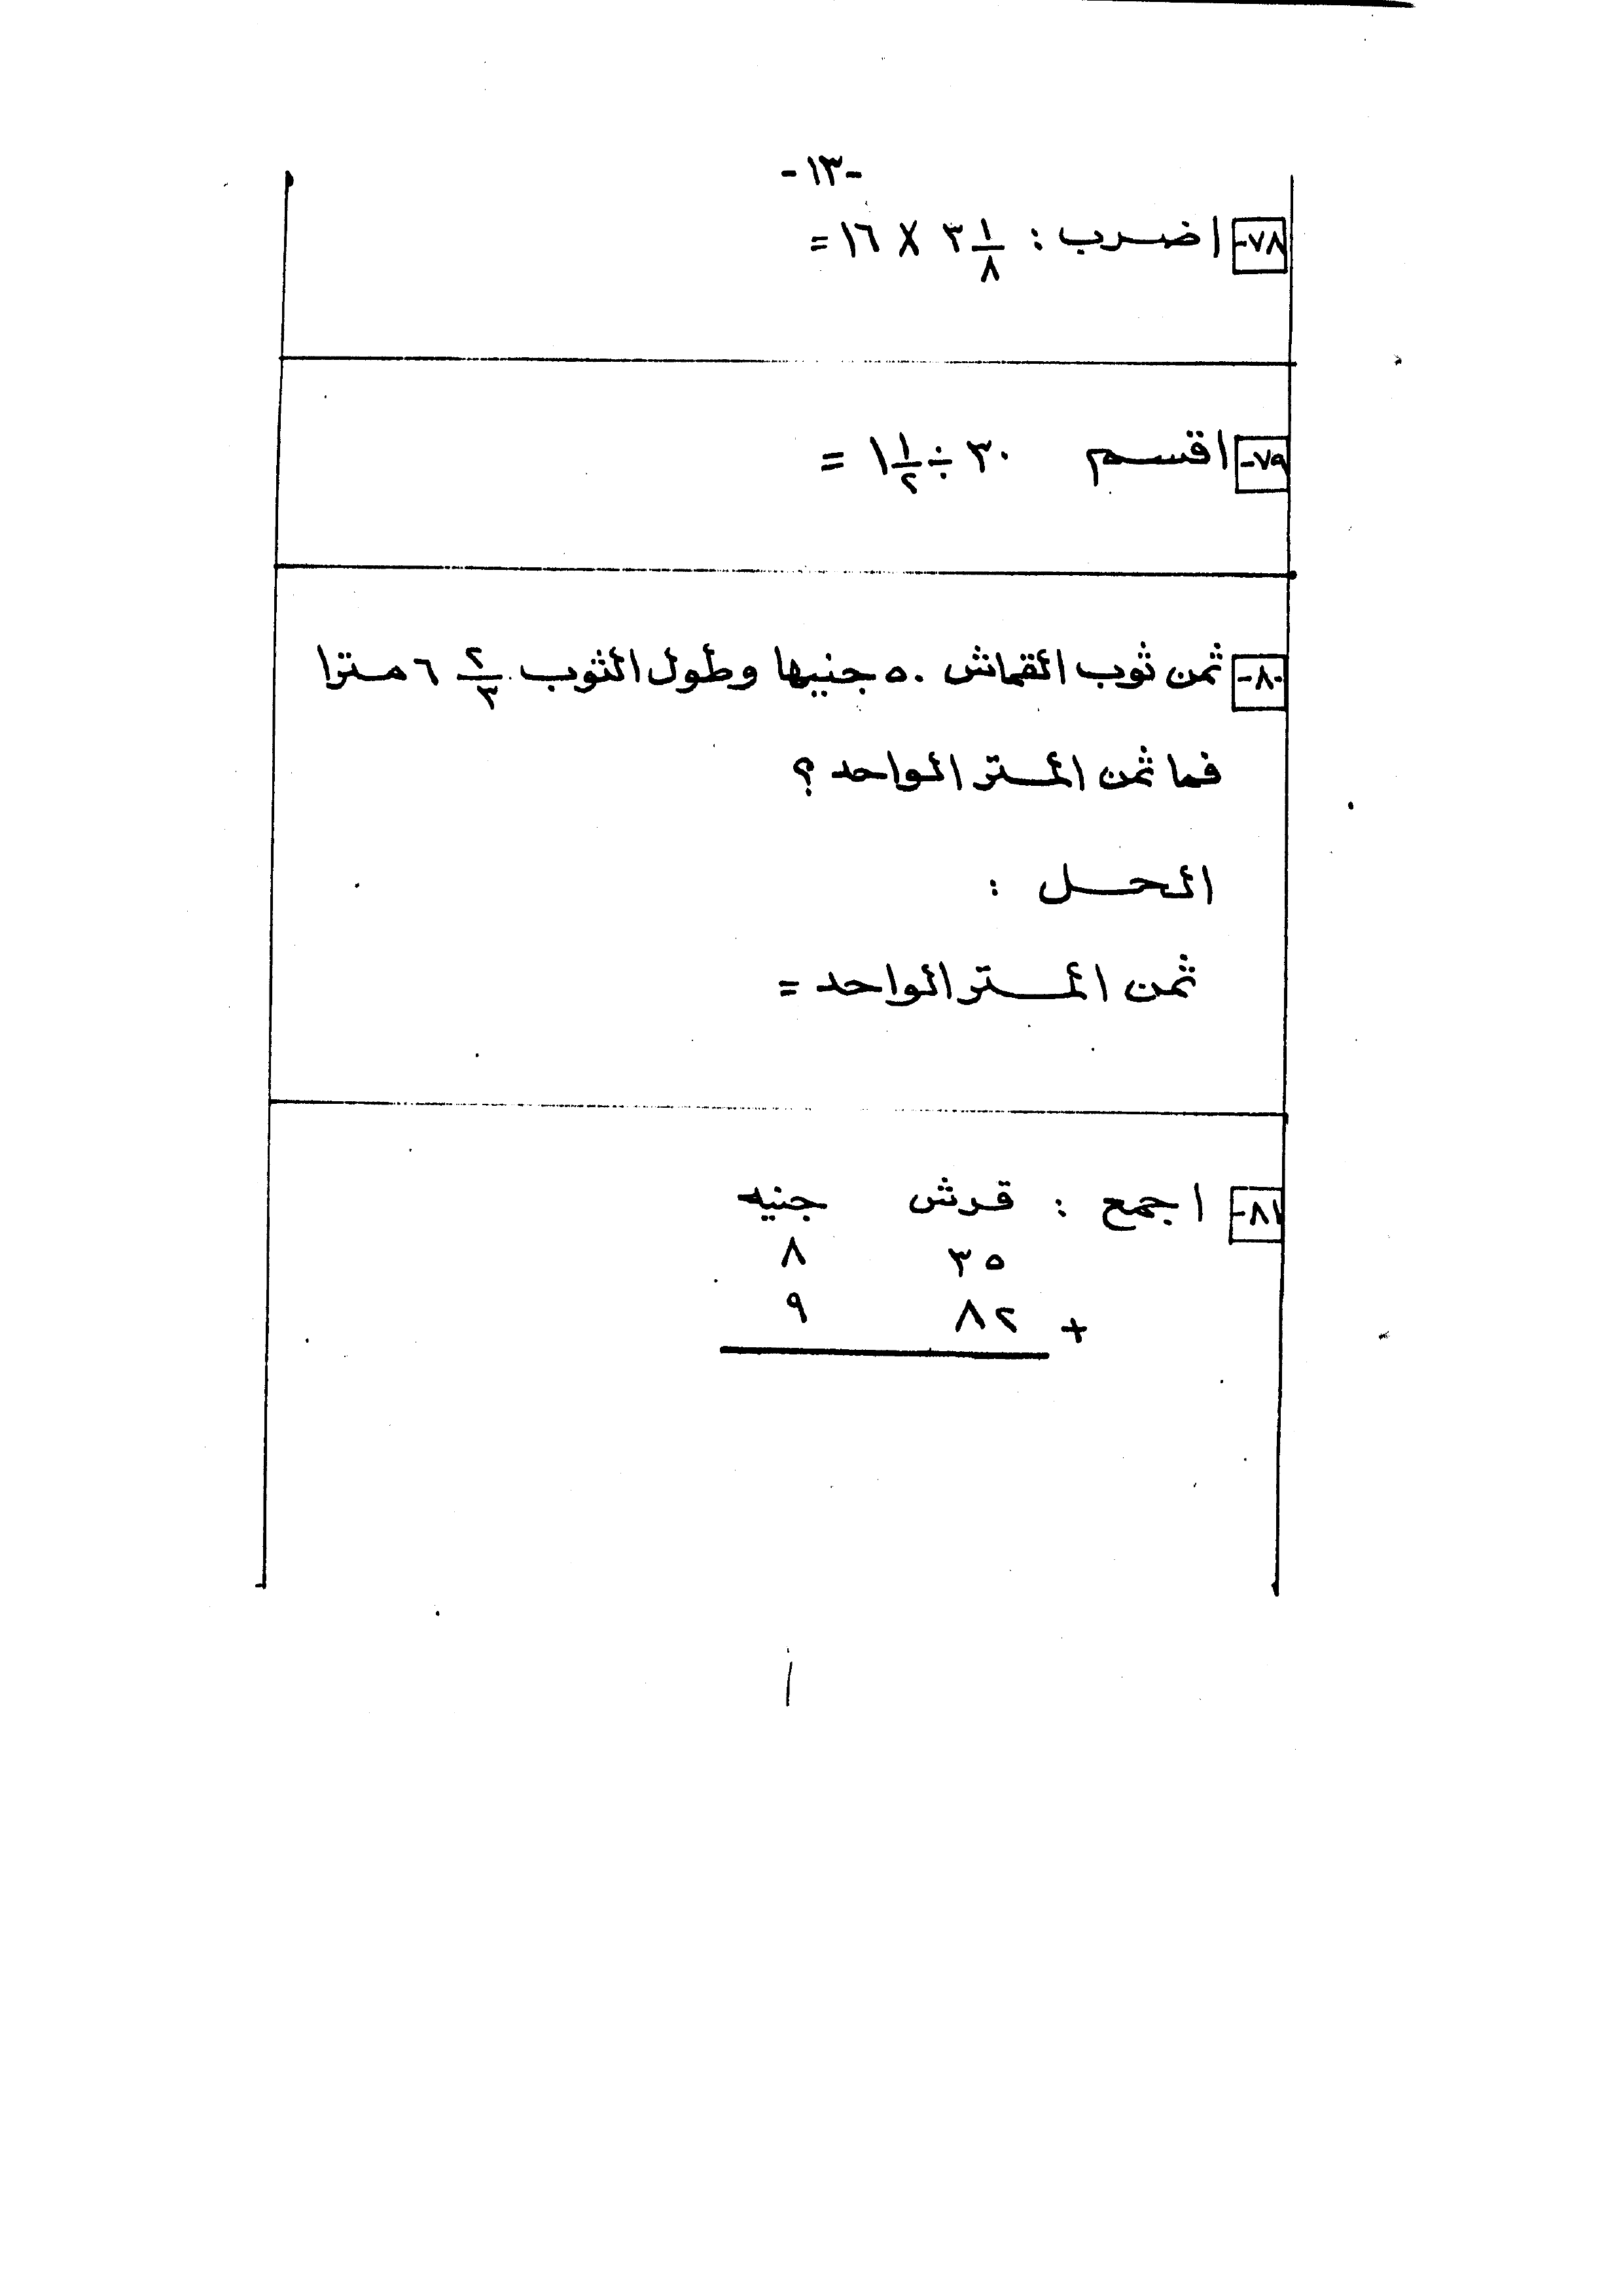 -١٣-
٧٨- اضرب : ٣ ١/٨ X ١٦ =
٧٩- اقسم ٣٠ ÷ ١ ١/٢ =
٨٠- ثمن ثوب القماش ٥٠ جنيها وطول الثوب ٦ ٢/٣ مترا
فما ثمن المتر الواحد ؟
الحل :
ثمن المتر الواحد =
٨١- اجمع : قرش جنيه
٣٥ ٨
+ ٨٢ ٩